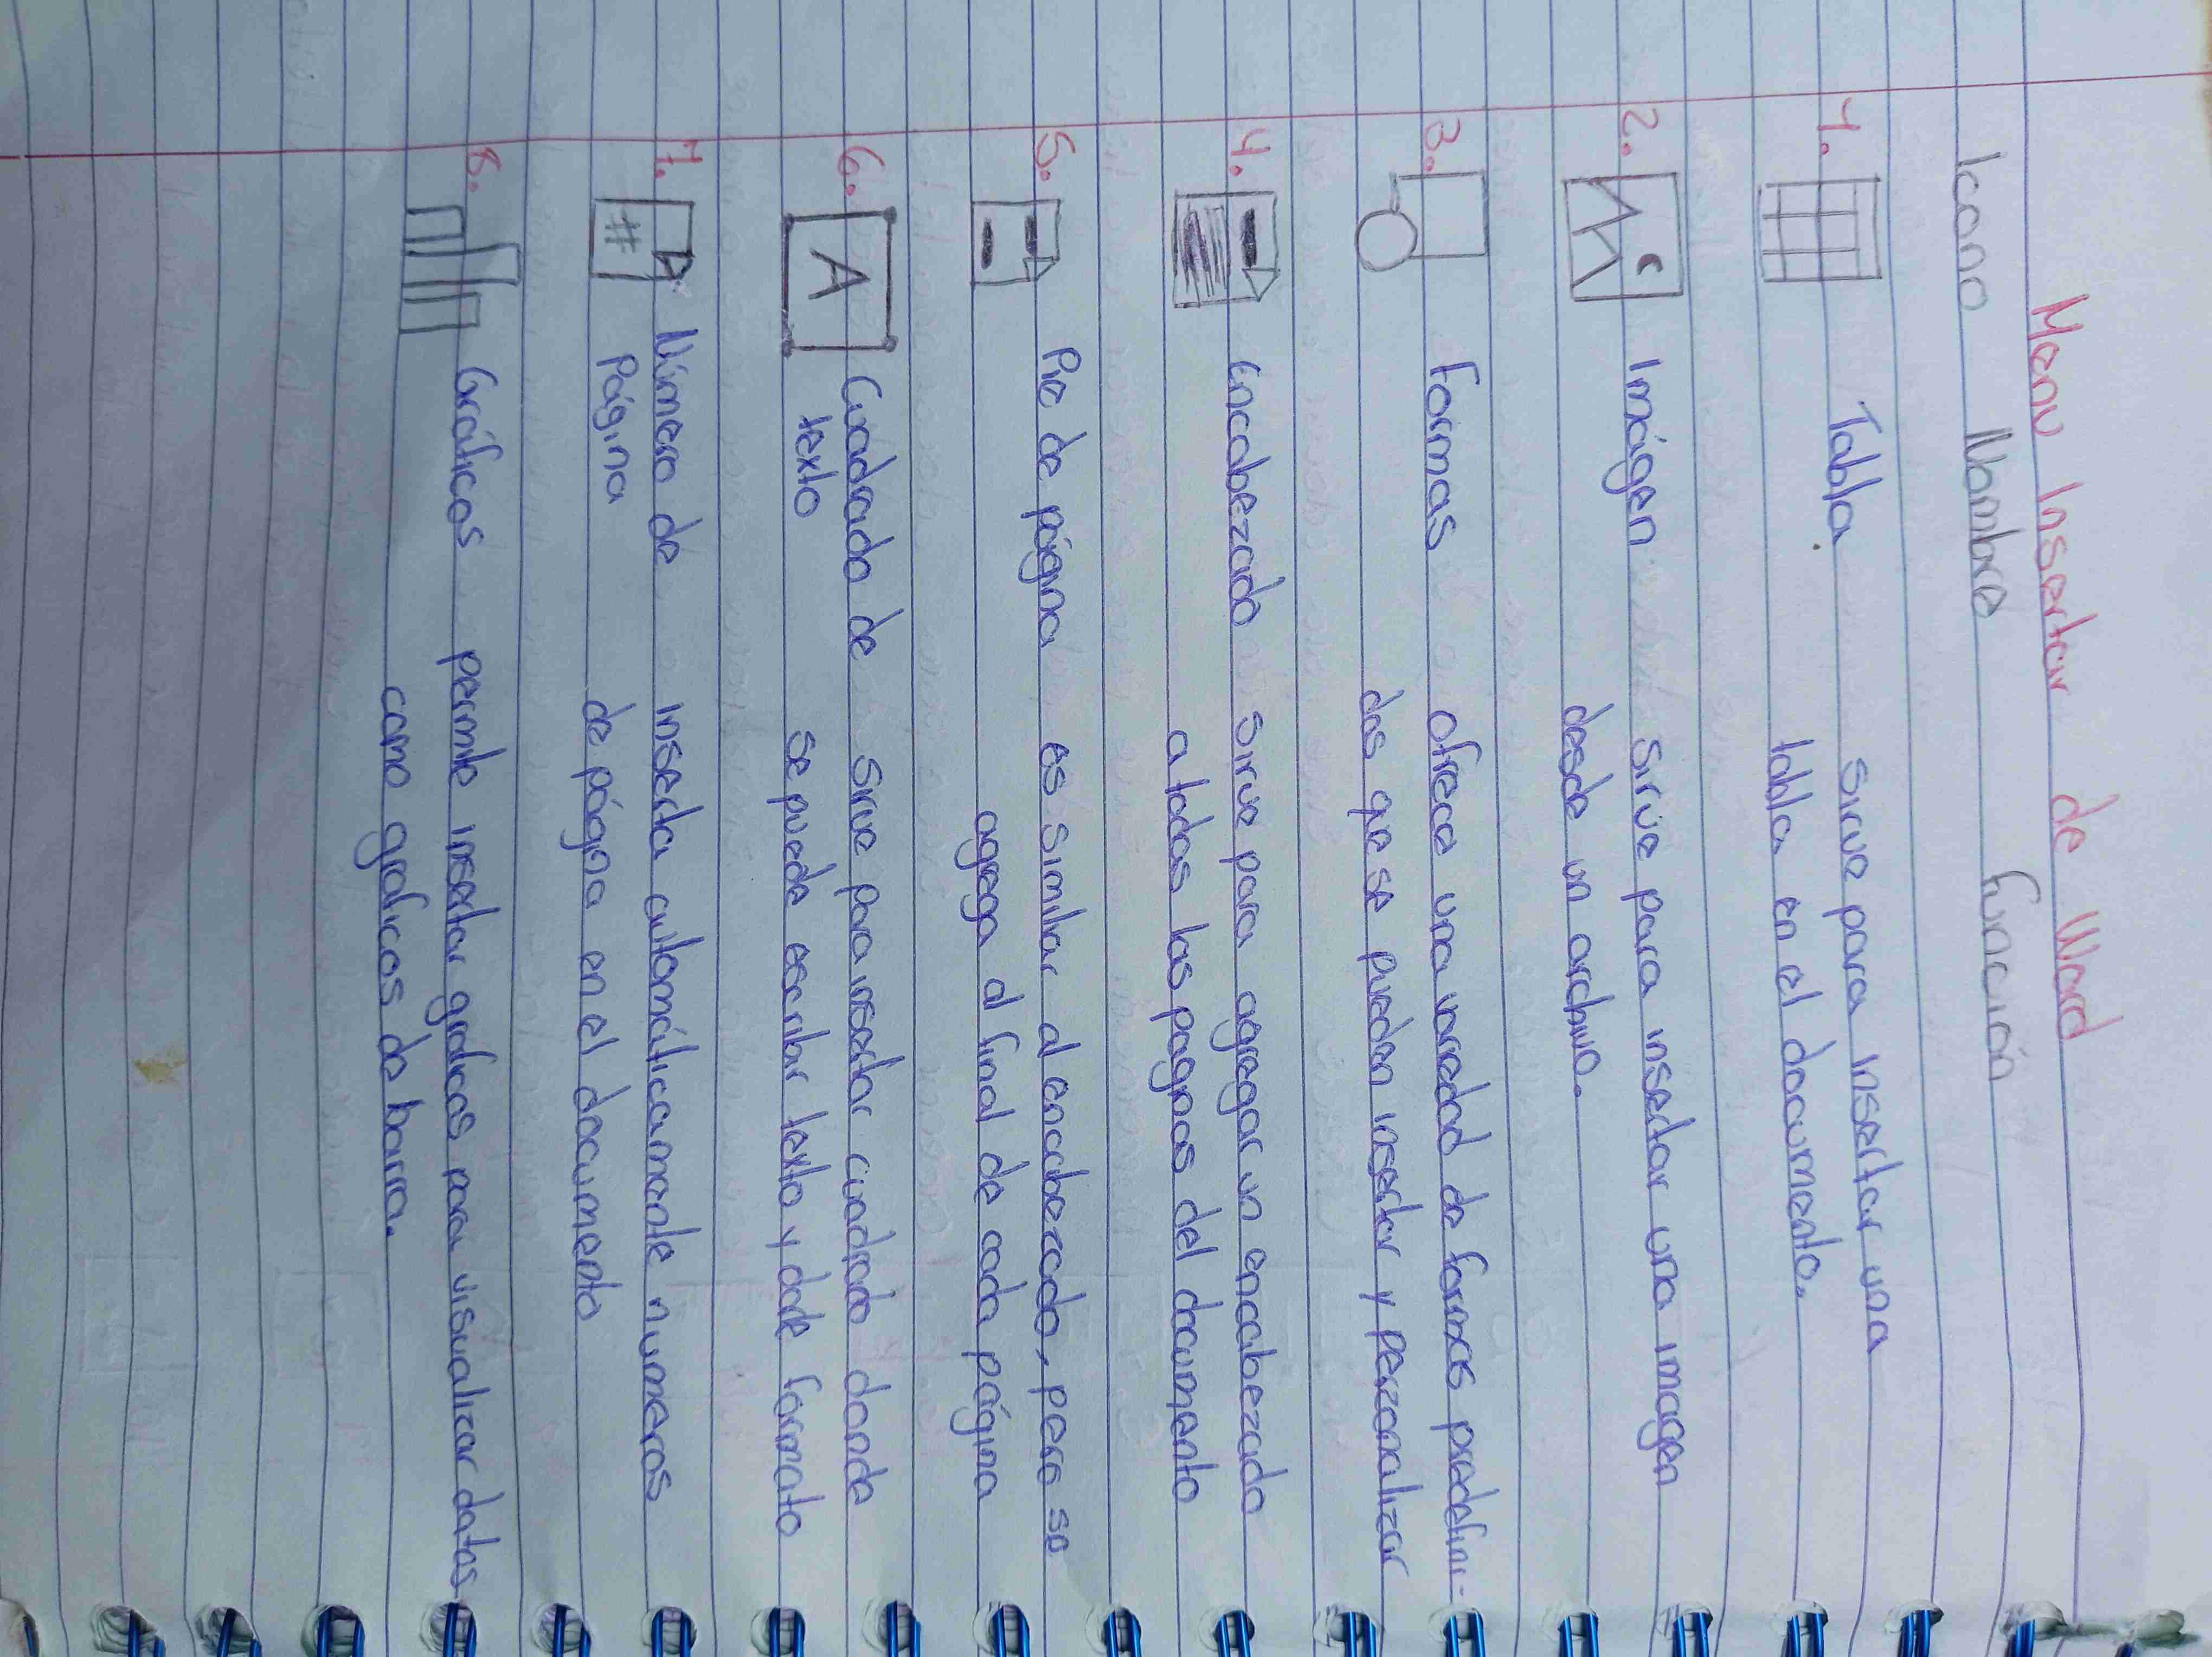 Menu Insertar de Word
Icono Nombre función
1. Tabla sirve para insertar una
tabla en el documento.
2. Imágen sirve para insertar una imagen
desde un archivo.
3. Formas ofrece una variedad de formas predefini-
das que se pueden insertar y perzonalizar
4. encabezado sirve para agregar un encabezado
a todas las paginas del documento
5. Pie de página es similar al encabezado, pero se
agrega al final de cada página
6. A Cuadrado de sirve para insertar cuadrado donde
texto se puede escribir texto y darle formato
7. # Número de inserta automáticamente numeros
Página de página en el documento
8. Gráficos permite insertar graficos para visualizar datos
como graficos de barra.